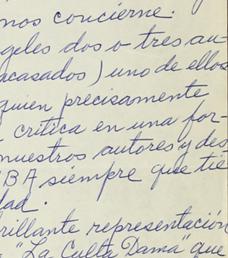 nos concierne.
geles dos o tres au-
acasados) uno de ellos
quien precisamente
critica en una for-
nuestros autores y des
BA siempre que tie
dad.
rillante representación
"La Culta Dama" que